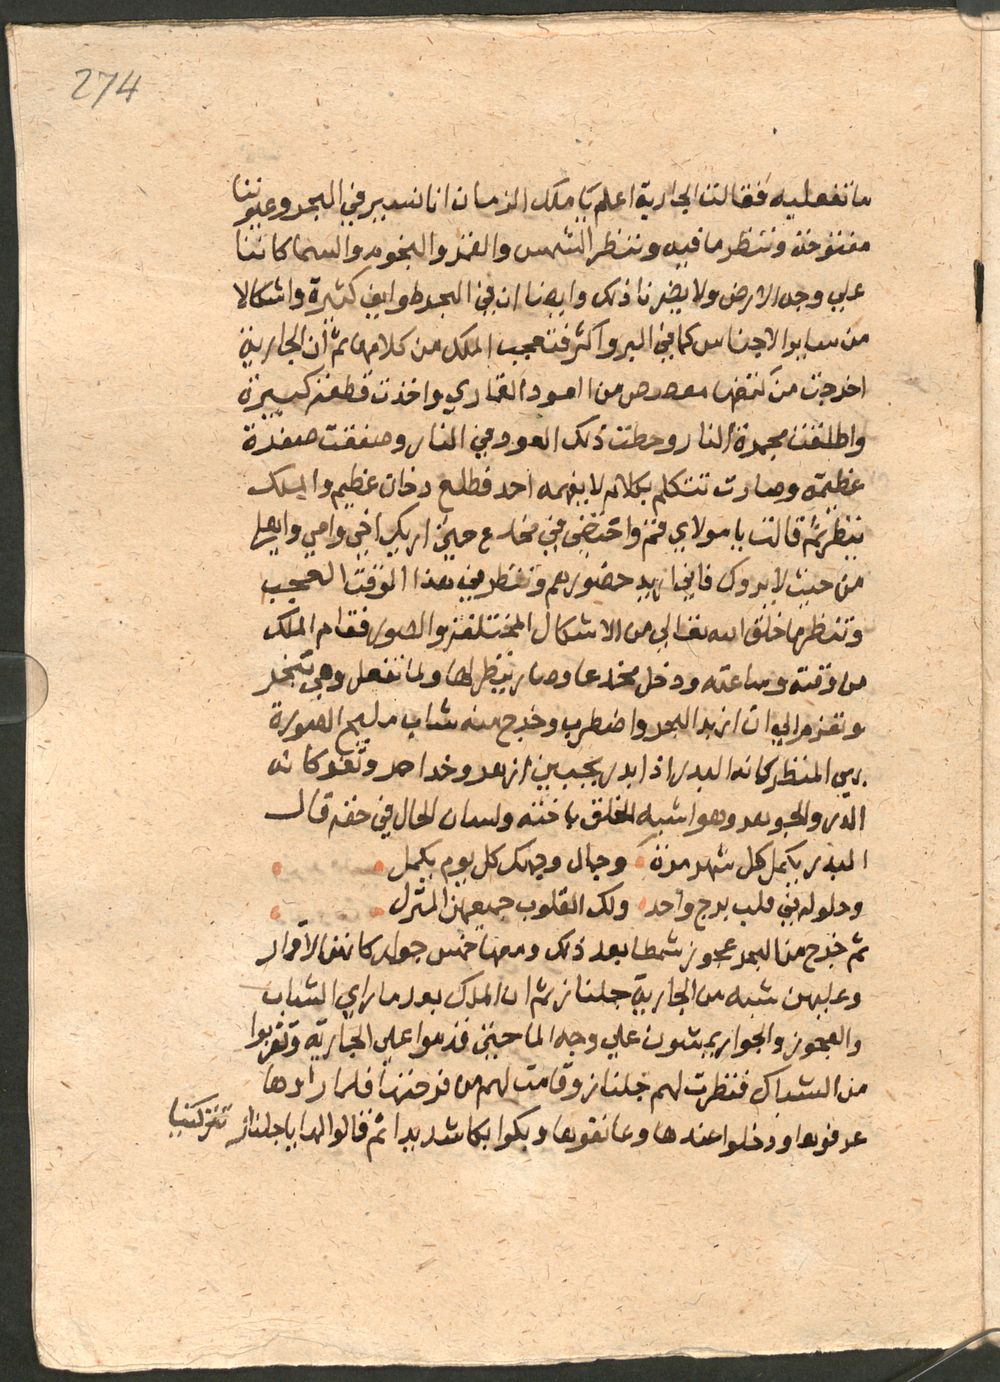 274
ما تفعليه فقالت الجارية اعلم يا ملك الزمان اننا نسير في البحر وعيوننا
مفتوحة وننظر ما فيه وننظر الشمس والقمر والنجوم والسما كاننا
علي وجه الارض ولا يضرنا ذلك وايضا ان في البحر طوايف كثيرة واشكالا
من ساير الاجناس كما في البر واكثر فتعجب الملك من كلامها ثم ان الجارية
اخرجت من كتفها فصوص من العود القماري واخذت قطعة كبيرة
واطلقت مجمرة النار وحطت ذلك العود في النار وصفقت صفقة
عظيمة وصارت تتكلم بكلام لا يفهمه احد فطلع دخان عظيم والملك
ينظر ثم قالت يا مولاي قم واختفي في مخدع حتي اريك اخي وامي واهلي
من حيث لا يروك فاني اريد حضورهم وتنظر في هذا الوقت العجب
وتنظر ما خلق الله تعالي من الاشكال المختلفة والصور فقام الملك
من وقته وساعته ودخل مخدعا وصار ينظر لها ولما تفعل وهي تبخر
وتعزم الي ان ازبد البحر واضطرب وخرج منه شاب مليح الصورة
بهي المنظر كانه البدر اذا بدر بجبين ازهر وخد احمر وثغر كانه
الدر والجوهر وهو اشبه الخلق باخته ولسان الحال في حقه قال
البدر يكمل كل شهر مرة وجمال وجهك كل يوم يكمل
وحلوله في قلب برج واحد ولك القلوب جميعهن المنزل
ثم خرج من البحر عجوز شمطا بعد ذلك ومعها خمس جوار كانهن الاقمار
وعليهن شبه من الجارية جلناز ثم ان الملك بعد ما راي الشباب
والعجوز والجوار يمشون علي وجه الما حتي قدموا علي الجارية وتقربوا
من الشباك فنظرت لهم جلناز وقامت لهم من فرحتها فلما راوها
عرفوها ودخلوا عندها وعانقوها وبكوا بكا شديدا ثم قالوا لها يا جلناز تتركينا